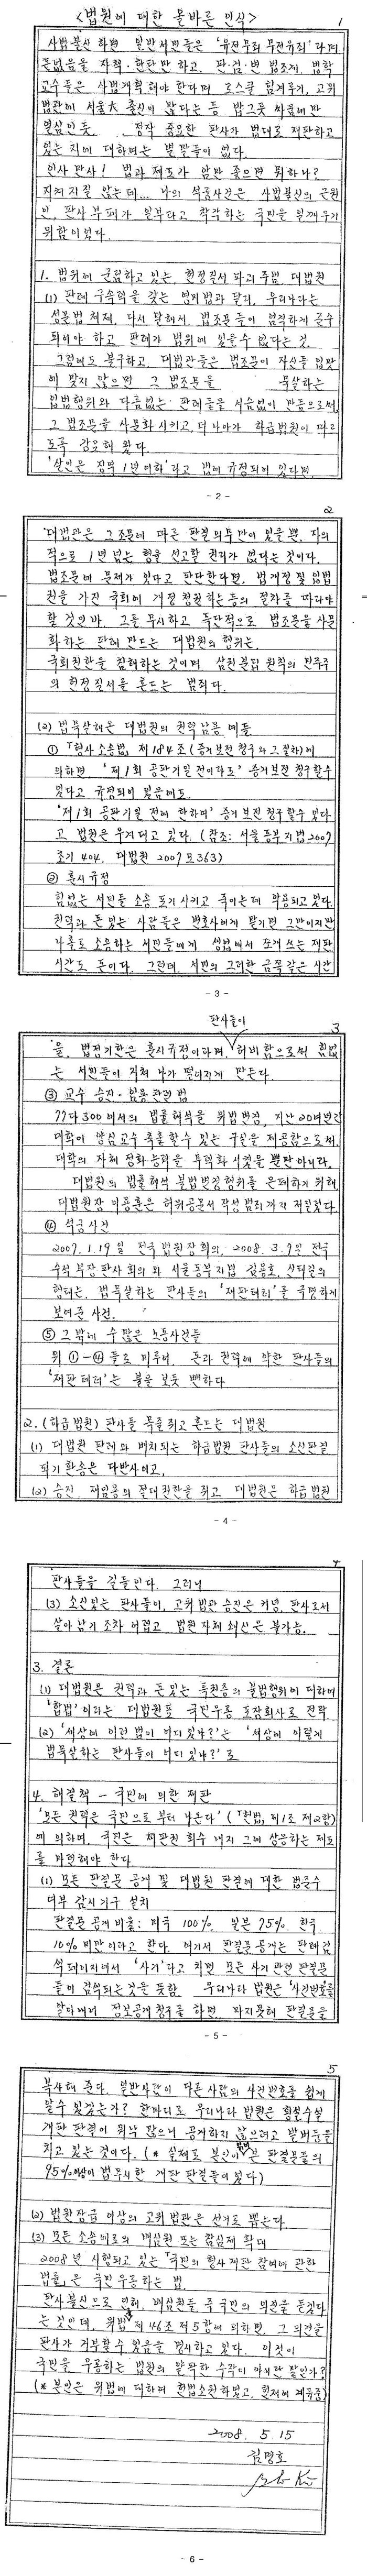 <법원에 대한 올바른 인식>
1
사법불신 하면 일반서민들은 '유전무죄 무전유죄'라며
돈없음을 자책·한탄만 하고, 판·검·변 법조계, 법학
교수들은 사법개혁해야 한다며 로스쿨 힘겨루기, 고위
법관에 서울大 출신이 많다는 등 밥그릇 싸움에만
열심인 듯. 정작 중요한 판사가 법대로 재판하고
있는 지에 대하여는 별 말들이 없다.
인사 만사! 법과 제도가 암만 좋으면 뭐하나?
지켜지질 않는데... 나의 석궁사건은 사법불신의 근원
인, 판사부패가 일부라고 착각하는 국민을 일깨우기
위함이었다.
1. 법위에 군림하고 있는, 헌정질서 파괴 주범 대법원
(1) 판례 구속력을 갖는 영미법과 달리, 우리나라는
성문법 체제, 다시 말해서, 법조문들이 엄격하게 준수
되어야 하고 판례가 법위에 있을수 없다는 것.
그럼에도 불구하고, 대법관들은 법조문이 자신들 입맛
에 맞지 않으면 그 법조문을 묵살하는
입법행위와 다름없는 판례들을 서슴없이 만듦으로서,
그 법조문을 사문화시키고, 더 나아가 하급법원이 따르
도록 강요해 왔다.
'살인은 징역 1년 이하'라고 법에 규정되어 있다면,
- 2 -
2
대법관은 그 조문에 따른 판결의무만이 있을 뿐, 자의
적으로 1년 넘는 형을 선고할 권리가 없다는 것이다.
법조문에 문제가 있다고 판단한다면, 법개정 및 입법
권을 가진 국회에 개정 청원하는등의 절차를 따라야
할 것인바, 그를 무시하고 독단적으로 법조문을 사문
화하는 판례 만드는 대법원의 행위는,
국회권한을 침해하는 것이며 삼권분립 원칙의 민주주
의 헌정질서를 흔드는 범죄다.
(2) 법묵살해온 대법원의 권력남용 예들
① 「형사소송법」 제184조 (증거보전 청구와 그 절차)에
의하면, '제1회 공판기일 전이라도' 증거보전 청구할수
있다고 규정되어 있음에도,
'제1회 공판기일 전에 한하여' 증거보전 청구할수 있다
고 법원은 우겨대고 있다. (참조: 서울동부지법 2007
초기 404, 대법원 2007모363)
② 훈시규정
힘없는 서민들 소송 포기시키고 죽이는데 악용되고 있다.
권력과 돈있는 사람들은 변호사에게 맡기면 그만이지만,
나홀로 소송하는 서민들에게 생업에서 쪼개 쓰는 재판
시간도 돈이다. 그런데, 서민의 그러한 금쪽같은 시간
- 3 -
3
을, 법정기한은 훈시규정이라며 판사들이 허비함으로서 힘없
는 서민들이 지쳐 나가 떨어지게 만든다.
③ 교수 승진·임용 관련 법
77다300에서의 법률해석을 위법변경, 지난 20여년간
대학이 양심교수 축출할수 있는 구실을 제공함으로서,
대학의 자체 정화능력을 무력화 시켰을 뿐만 아니라,
대법원의 법률해석 불법변경행위를 은폐하기 위해
대법원장 이용훈은 허위공문서 작성 범죄까지 저질렀다.
④ 석궁사건
2007.1.19일 전국 법원장회의, 2008.3.7일 전국
수석부장판사회의와 서울동부지법 김용호, 신태길의
행태는, 법묵살하는 판사들의 '재판테러'를 극명하게
보여준 사건.
⑤ 그밖에 수많은 노동사건들
위 ①-④ 들로 미루어, 돈과 권력에 약한 판사들의
'재판테러'는 불을 보듯 뻔하다
2. (하급법원) 판사들 목줄쥐고 흔드는 대법원
(1) 대법원 판례와 배치되는 하급법원 판사들의 소신판결
파기환송은 다반사이고,
(2) 승진, 재임용의 절대권한을 쥐고 대법원은 하급법원
- 4 -
4
판사들을 길들인다. 그러니
(3) 소신있는 판사들이, 고위법관 승진은 커녕, 판사로서
살아남기 조차 어렵고 법원자체 쇄신은 불가능.
3. 결론
(1) 대법원은 권력과 돈있는 특권층의 불법행위에 대하여
'합법'이라는 대법원표 국민우롱 포장회사로 전락
(2) '세상에 이런 법이 어디있나?'는 '세상에 이렇게
법묵살하는 판사들이 어디 있나?'로
4. 해결책 - 국민에 의한 재판
'모든 권력은 국민으로 부터 나온다' (「헌법」 제1조 제2항)
에 의하여, 국민은 재판권 회수 내지 그에 상응하는 제도
를 마련해야 한다
(1) 모든 판결문 공개 및 대법원 판결에 대한 법준수
여부 감시기구 설치
판결문 공개 비율: 미국 100%, 일본 75%, 한국
10% 미만이라고 한다. 여기서 판결문공개는 판례검
색 페이지에서 '사기'라고 치면 모든 사기 관련 판결문
들이 검색되는 것을 뜻함. 우리나라 법원은 '사건번호'를
알아내어 정보공개 청구를 하면, 마지못해 판결문을
- 5 -
5
복사해 준다. 일반사람이 다른 사람의 사건번호를 쉽게
알수 있겠는가? 한마디로 우리나라 법원은 횡설수설
개판 판결이 워낙 많으니 공개하지 않으려고 발버둥을
치고 있는 것이다. (* 실제로 본인이 본 판결문들의
95%이상이 법무시한 개판 판결들이었다)
(2) 법원장급 이상의 고위 법관은 선거로 뽑는다
(3) 모든 소송에로의 배심원 또는 참심제 확대
2008년 시행되고 있는 「국민의 형사재판 참여에 관한
법률」은 국민우롱하는 법.
판사불신으로 인해, 배심원들, 즉 국민의 의견을 듣겠다
는 것인데, 위법 제46조 제5항에 의하면, 그 의견을
판사가 거부할수 있음을 명시하고 있다. 이것이
국민을 우롱하는 법원의 얄팍한 수작이 아니란 말인가?
(* 본인은 위법에 대하여 헌법소원하였고, 현재에 계류중)
2008. 5. 15
김명호
- 6 -